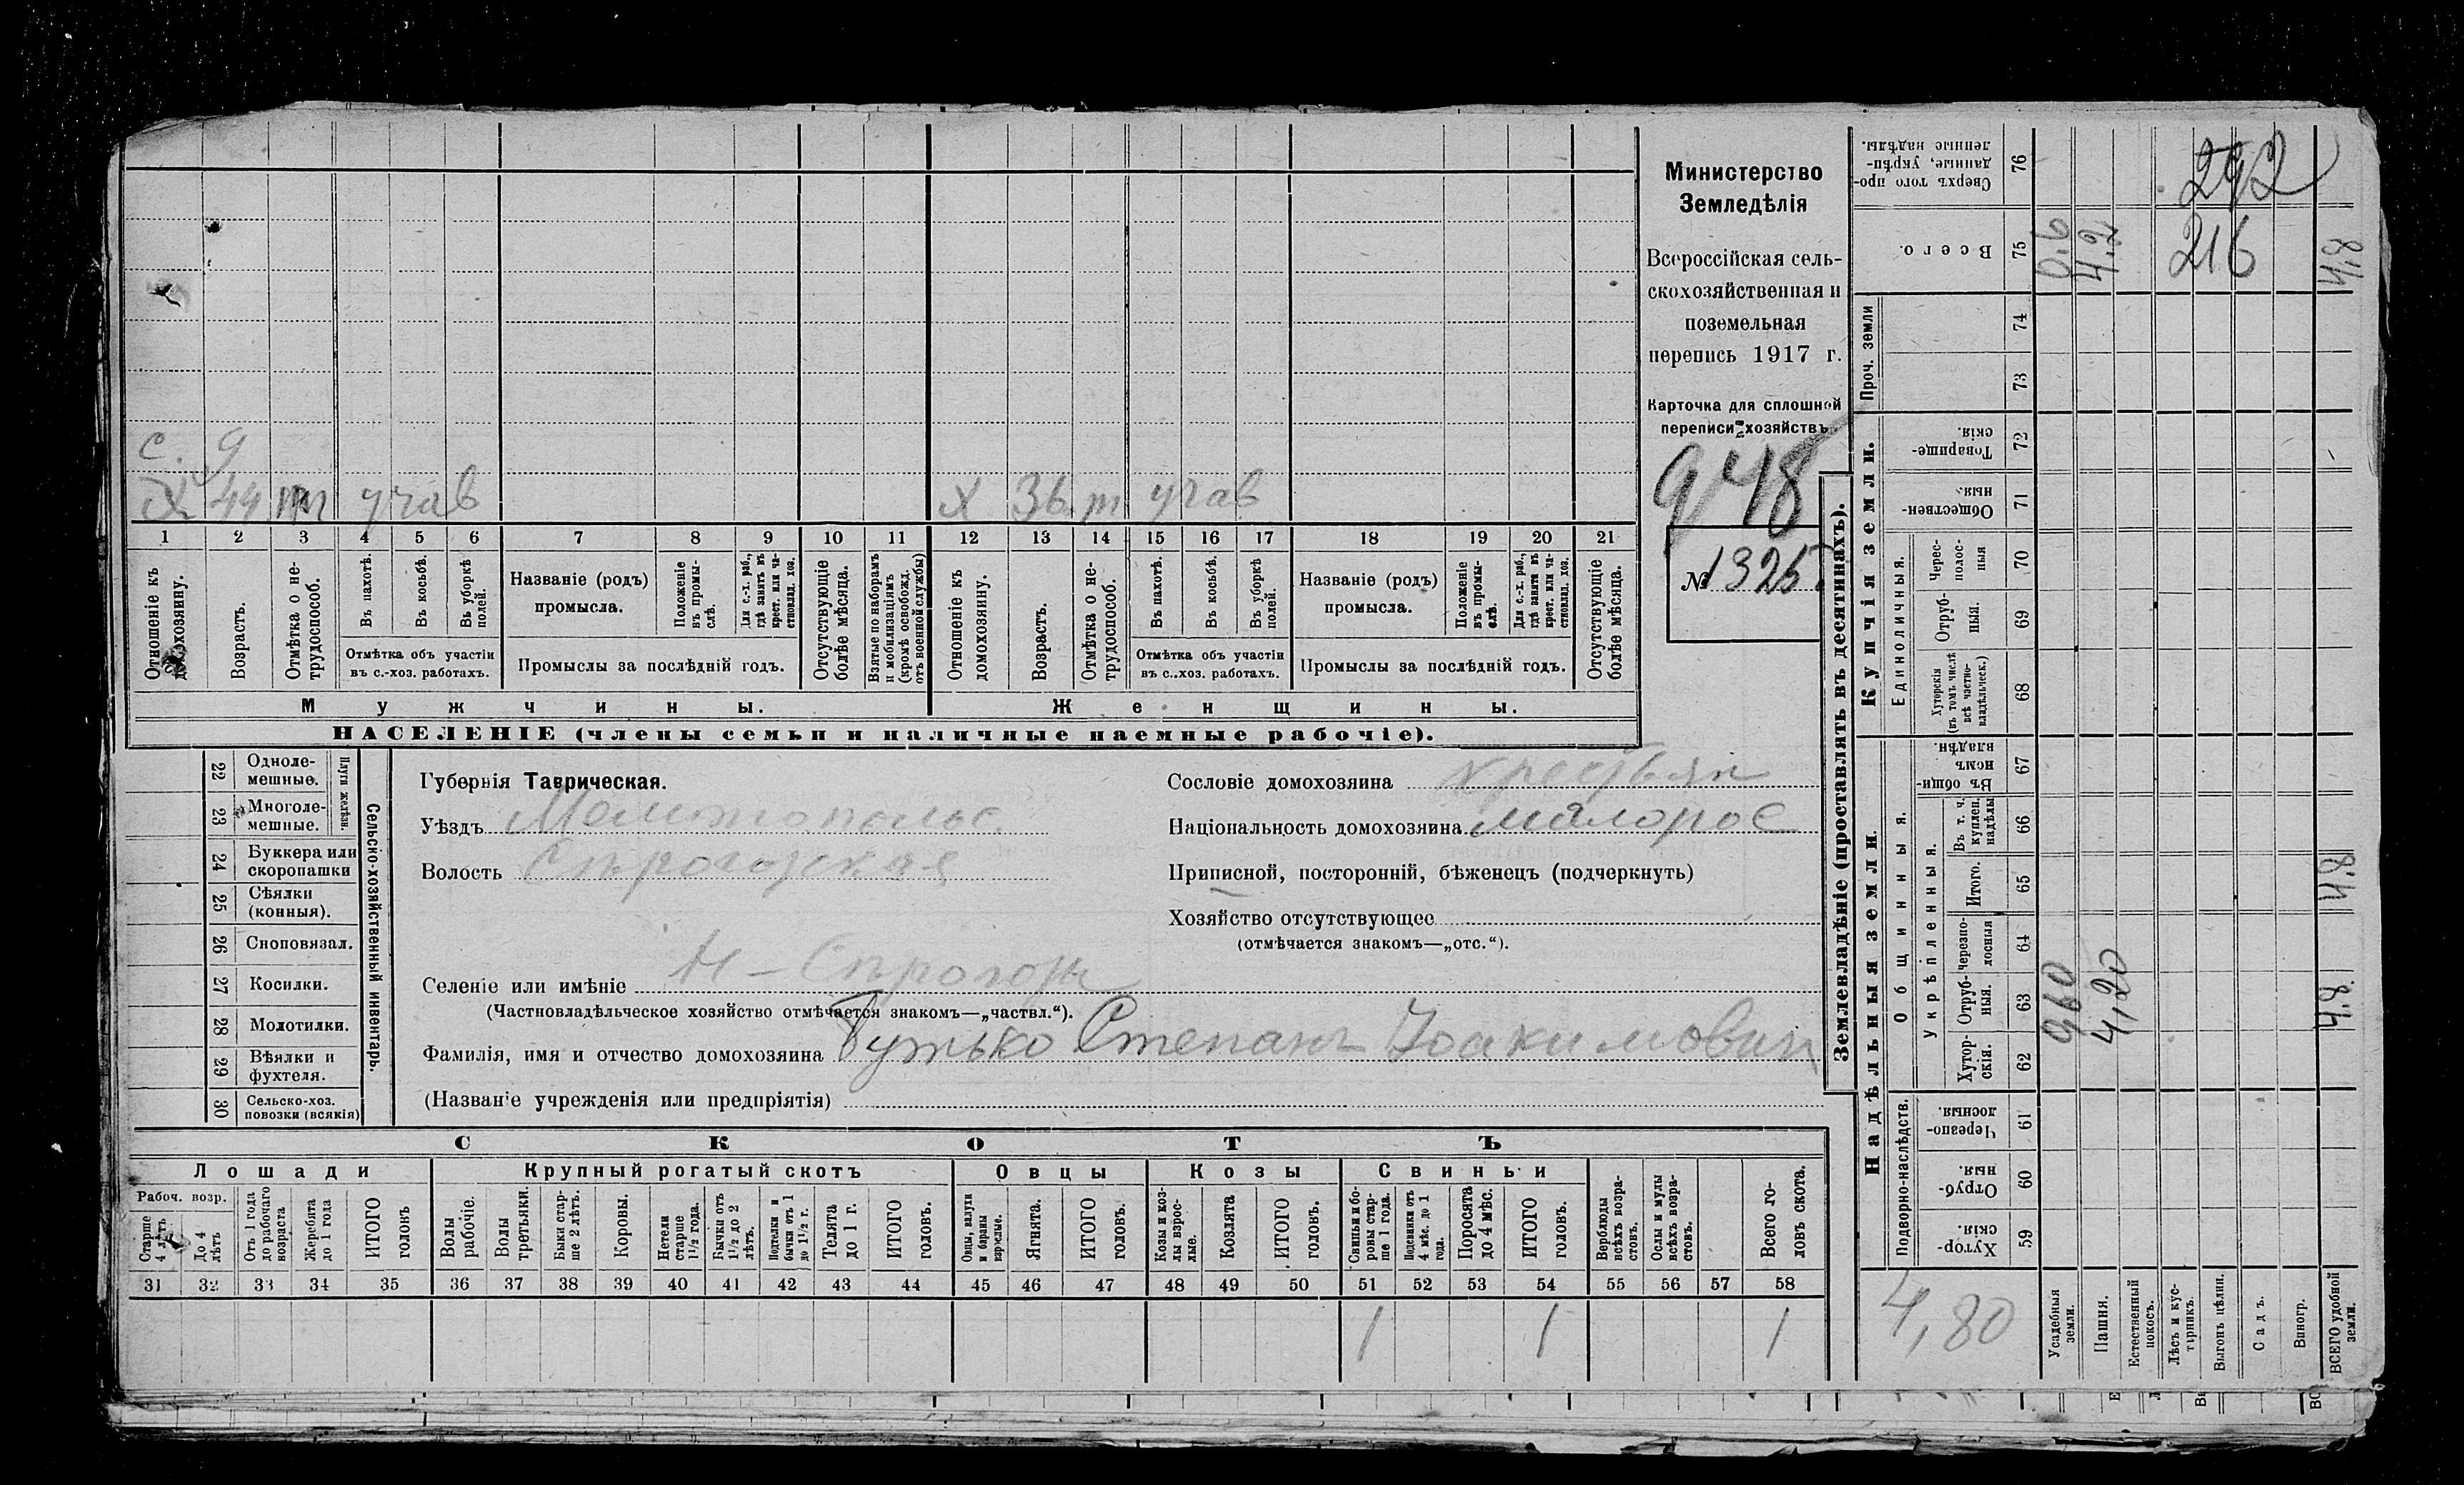 Министерство
Земледѣлія
Всероссійская сель-
скохозяйственная и
поземельная
перепись 1917 г.
Карточка для сплошной
переписи хозяйствъ.
948
№ 1325
с. 9
х 44 m учав
х 36 m учав
1 2 3 4 5 6 7 8 9 10 11 12 13 14 15 16 17 18 19 20 21
Отношеніе къ домохозяину.
Возрастъ.
Отмѣтка о не-трудоспособ.
Въ пахотѣ.
Въ косьбѣ.
Въ уборкѣ полей.
Отмѣтка объ участіи
въ с.-хоз. работахъ.
Названіе (родъ)
промысла.
Положеніе въ промы-слѣ.
Для с.-х. раб., гдѣ занятъ въ крест. или ча-стновлад. хоз.
Промыслы за послѣдній годъ.
Отсутствующіе болѣе мѣсяца.
Взятые по наборамъ и мобилизаціямъ (кромѣ освобожд. отъ военной службы)
Отношеніе къ домохозяину.
Возрастъ.
Отмѣтка о не-трудоспособ.
Въ пахотѣ.
Въ косьбѣ.
Въ уборкѣ полей.
Отмѣтка объ участіи
въ с..хоз. работахъ.
Названіе (родъ)
промысла.
Положеніе въ промы-слѣ.
Для с.-х. раб., гдѣ занятъ въ крест. или ча-стновлад. хоз.
Промыслы за послѣдній годъ.
Отсутствующіе болѣе мѣсяца.
Мужчины. Женщины.
НАСЕЛЕНІЕ (члены семьи и наличные наемные рабочіе).
22 Одноле-мешные.
23 Многоле-мешные.
Плуги желѣзн.
24 Буккера или скоропашки
25 Сѣялки (конныя).
26 Сноповязал.
27 Косилки.
28 Молотилки.
29 Вѣялки и фухтеля.
30 Сельско-хоз. повозки (всякія)
Сельско-хозяйственный инвентарь.
Губернія Таврическая.
Уѣздъ Мелитопольс.
Волость
Селеніе или имѣніе
(Частновладѣльческое хозяйство отмѣчается знакомъ—„частвл.“).
Фамилія, имя и отчество домохозяина Гутько Степанъ Иоакимович
(Названіе учрежденія или предпріятія)
Сословіе домохозяина крестьян
Національность домохозяина малорос
Приписной, посторонній, бѣженецъ (подчеркнуть)
Хозяйство отсутствующее
(отмѣчается знакомъ—„отс.“).
СКОТЪ
Лошади Крупный рогатый скотъ Овцы Козы Свиньи
Рабоч. возр.
Старше 4 лѣтъ
До 4 лѣтъ
Отъ 1 года до рабочаго возраста
Жеребята до 1 года
ИТОГО головъ
Волы рабочіе.
Волы третьяки.
Быки стар-ше 2 лѣтъ.
Коровы.
Нетели старше 1½ года.
Бычки отъ 1½ до 2 лѣтъ.
Подтелки и бычки отъ 1 до 1½ г.
Телята до 1 г.
ИТОГО головъ.
Овцы, валухи и бараны взрослые.
Ягнята.
ИТОГО головъ.
Козы и коз-лы взрос-лые.
Козлята
ИТОГО головъ.
Свиньи и бо-ровы стар-ше 1 года.
Подсвинки отъ 4 мѣс. до 1 года.
Поросята до 4 мѣс.
ИТОГО головъ.
Верблюды всѣхъ возра-стовъ.
Ослы и мулы всѣхъ возра-стовъ.
Всего го-ловъ скота.
31 32 33 34 35 36 37 38 39 40 41 42 43 44 45 46 47 48 49 50 51 52 53 54 55 56 57 58
1 1 1
Землевладѣніе (проставлять въ десятинахъ).
Сверхъ того про-данные, укрѣп-ленные надѣлы. 76
292
Всего. 75
0.6 4.2 216 4,8
Проч. земли 74 73
Купчія земли.
Товарище-скія. 72
Обществен-ныя. 71
Единоличныя.
Черес-полос-ныя 70
Отруб-ныя. 69
Хуторскія (въ томъ числѣ всѣ частно-владѣльческ.) 68
Надѣльныя земли.
Въ общи-номъ владѣн. 67
Общинныя.
Укрѣпленныя.
Въ т. ч. куплен. надѣлы 66
Итого. 65
4,8
Черезпо-лосныя 64
Отруб-ныя. 63
960 4,20 4,8
Хутор-скія. 62
Подворно-наслѣдств.
Черезпо-лосныя. 61
Отруб-ныя. 60
Хутор-скія. 59
4,80
Усадебныя земли.
Пашня.
Естественный покосъ.
Лѣсъ и кус-тарникъ.
Выгонъ цѣлин.
Садъ.
Виногр.
ВСЕГО удобной земли.